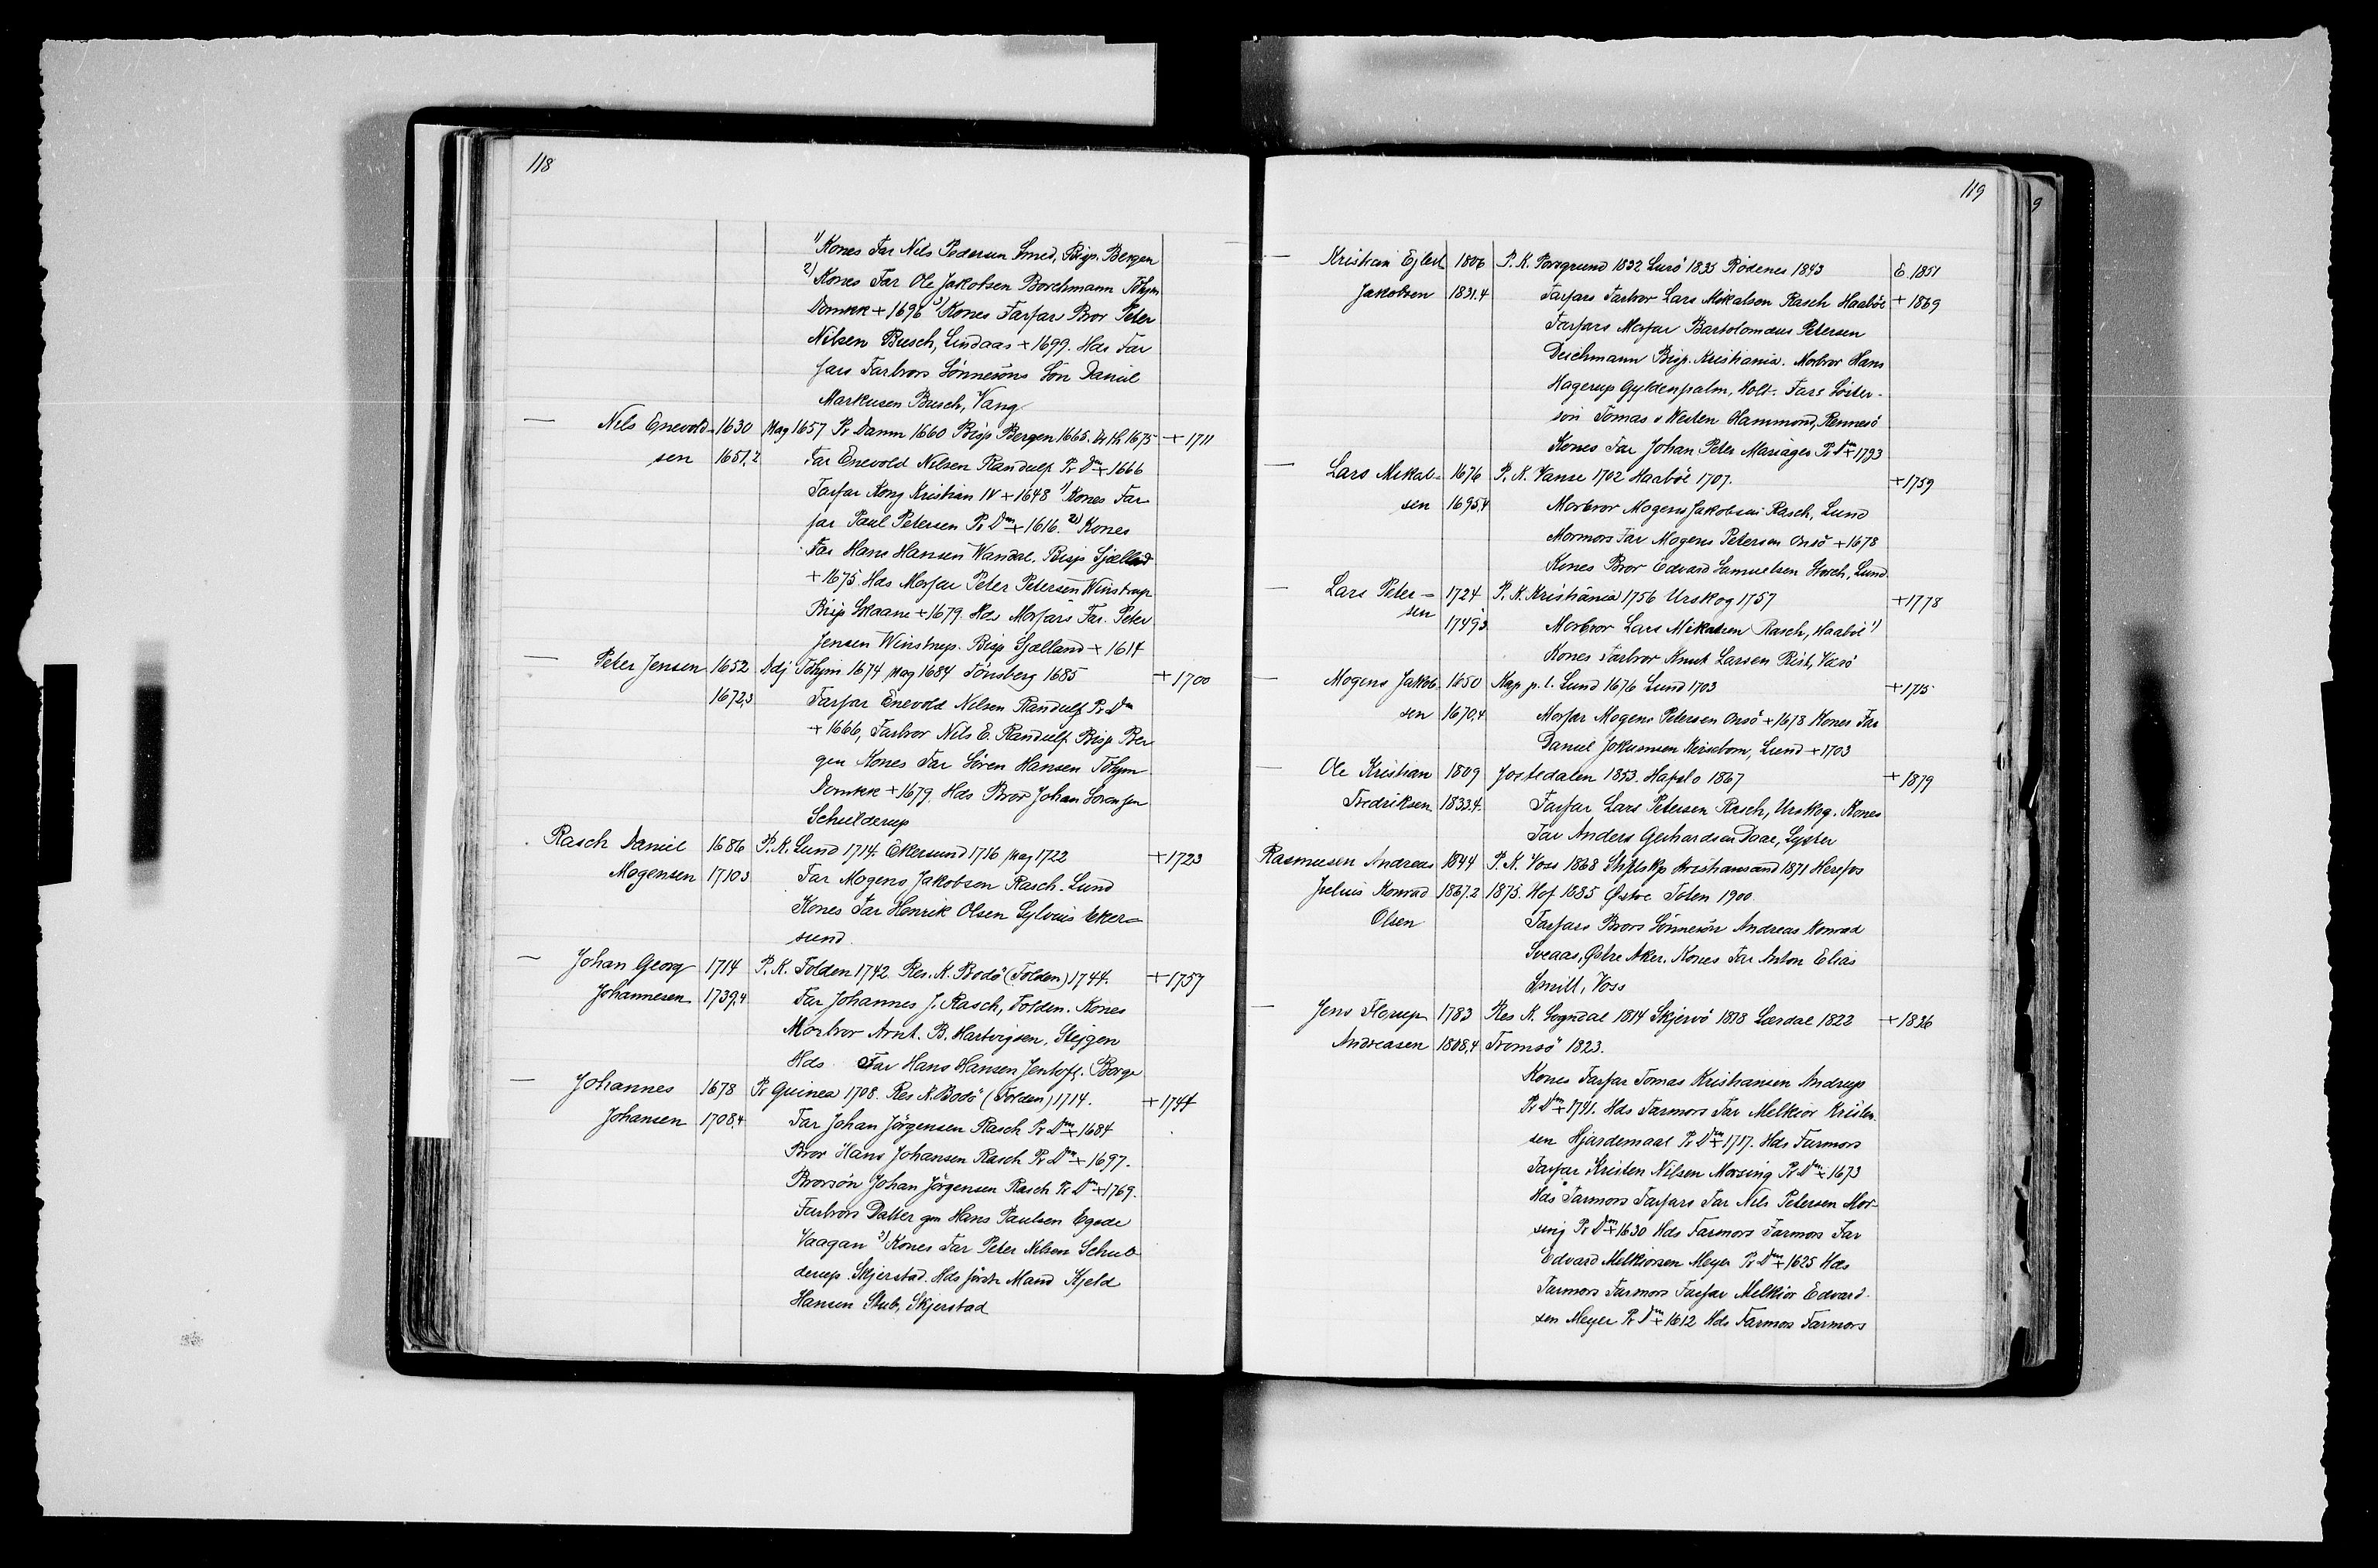 118
1) Kones Far Nils Pedersen Smed, Bisp. Bergen
2) Kones Far Ole Jakobsen Borchmann Tóhjm
Domkk + 1696 3) Kones Farfars Bror Peter
Nilsen Busch, Lindaas + 1699. Hds Far
fars Farbrors Sönnesöns Sön Daniel
Markusen Busch, Vang
— Nils Enevold- 1630 Mag 1657 Pr Danm 1660 Bisp Bergen 1665. Dr th 1675 + 1711
sen 1651,2 Far Enevold Nilsen Randulf Pr Dm + 1666
Farfar Kong Kristian IV + 1648 1) Kones Far
far Paul Petersen Pr Dm + 1616. 2) Kones
Far Hans Hansen Wandal. Bisp Sjælland
+ 1675. Hds Morfar Peter Petersen Winstrup
Bisp Skaane + 1679. Hds Morfars Far. Peter
Jensen Winstrup. Bisp Sjælland + 1614
— Peter Jensen 1652 Adj Tóhjm 1674 Mag 1684 Tönsberg 1685 + 1700
1672,3 Farfar Enevold Nilsen Randulf Pr Dm
+ 1666, Farbror Nils E. Randulf Bisp Ber
gen Kones Far Sören Hansen Tóhjm
Domkk + 1679. Hds Bror Johan Sörensen
Schulderup
Rasch Daniel 1686 P. K. Lund 1714. Ekersund 1716 Mag 1722 + 1723
Mogensen 1710 3 Far Mogens Jakobsen Rasch. Lund
Kones Far Henrik Olsen Sylvius Eker=
sund.
— Johan Georg 1714 P. K. Folden 1742 Res. K. Bodö (Folden) 1744. + 1757
Johannesen 1739,4 Far Johannes J. Rasch, Folden. Kones
Morbror Arnt. B. Hartvigsen, Stejgen
Hds Far Hans Hansen Jentoft. Borge
— Johannes 1678 Pr Guinea 1708. Res K. Bodö (Folden) 1714. + 1744
Johansen 1708,4 Far Johan Jörgensen Rasch Pr Dm + 1684
Bror Hans Johansen Rasch Pr Dm + 1697.
Brorsön Johan Jörgensen Rasch Pr Dm + 1769.
Farbrors Datter gm Hans Paulsen Egede
Vaagan 2) Kones Far Peter Nilsen Schul
derup. Skjerstad. Hds förste Mand Kjeld
Hansen Stub, Skjerstad
119
— Kristian Ejlert 1806 P. K. Porsgrund 1832 Lurö 1835 Rödenes 1843 E. 1851
Jakobsen 1831.4 Farfars Farbror Lars Mikalsen Rasch Haaböl + 1869
Farfars Morfar Bartolomæus Petersen
Deichmann Bisp. Kristiania. Morbror Hans
Hagerup Gyldenpalm, Holt. Fars Söster-
sön Tomas v Westen Hammond, Rennesö
Kones Far Johan Peter Mariager Pr Dm + 1793
— Lars Mikal= 1676 P. K. Vanse 1702 Haaböl 1707. + 1759
sen 1695,4 Morbror Mogens Jakobsen Rasch, Lund
Mormors Far Mogens Petersen Onsö + 1678
Kones Bror Edvard Samuelsen Storch, Lund
— Lars Peter= 1724 P. K. Kristiania 1756 Urskog 1757 + 1778
sen 1749 3 Morbror Lars Mikalsen Rasch, Haaböl 1)
Kones Farbror Knut Larsen Rist, Værö
— Mogens Jakob 1650 Kap p. l. Lund 1676 Lund 1703 + 1715
sen 1670,4 Morfar Mogens Petersen Onsö + 1678 Kones Far
Daniel Jokumsen Kirsebom, Lund + 1703
— Ole Kristian 1809 Jostedalen 1853. Hafslo 1867 + 1879
Fredriksen 1833.4. Farfar Lars Petersen Rasch, Urskog. Kones
Far Anders Gerhardsen Daae, Lyster
Rasmusen Andreas 1844 P. K. Voss 1868 Stiftskp Kristiansand 1871 Herefos
Julius Konrad 1867.2 1875. Hof 1885 Østre Toten 1900.
Olsen Farfars Brors Sönnesön Andreas Konrad
Sveaas, Østre Aker. Kones Far Anton Elias
Smitt, Voss
— Jens Florup 1783 Res K. Sogndal 1814 Skjervö 1818 Lærdal 1822 + 1826
Andreasen 1808,4 Tromsö 1823.
Kones Farfar Tomas Kristiansen Andrup
Pr Dm + 1741. Hds Farmors Far Melkior Kristen
sen Hjardemaal Pr Dm + 1717. Hds Farmors
Farfar Kristen Nilsen Morsing Pr Dm + 1673
Hds Farmors Farfars Far Nils Petersen Mor-
sing Pr Dm + 1630 Hds Farmors Farmors Far
Edvard Melkiorsen Meyer Pr Dm + 1625 Hds
Farmors Farmors Farfar Melkior Edvard-
sen Meyer Pr Dm + 1612 Hds Farmors Farmors
9